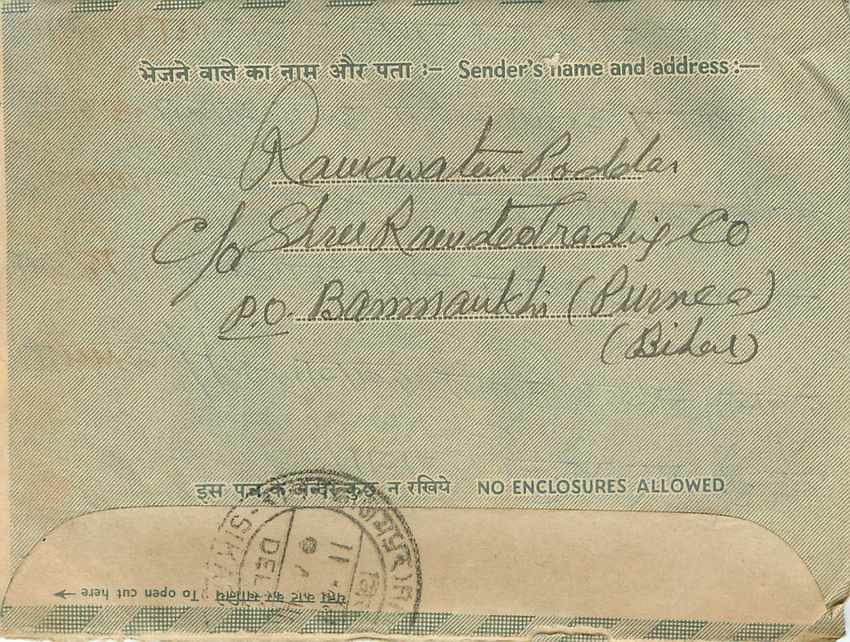 भेजने वाले का नाम और पता :— Sender's name and address:—
Ramawatar Poddar
c/o Shree Ramdeo Trading Co
P.O. Banmankhi (Purnea)
(Bihar)
इस पत्र के अन्दर कुछ न रखिये NO ENCLOSURES ALLOWED
SIKAR
DEL
11
यहां काट कर खोलिये To open cut here →